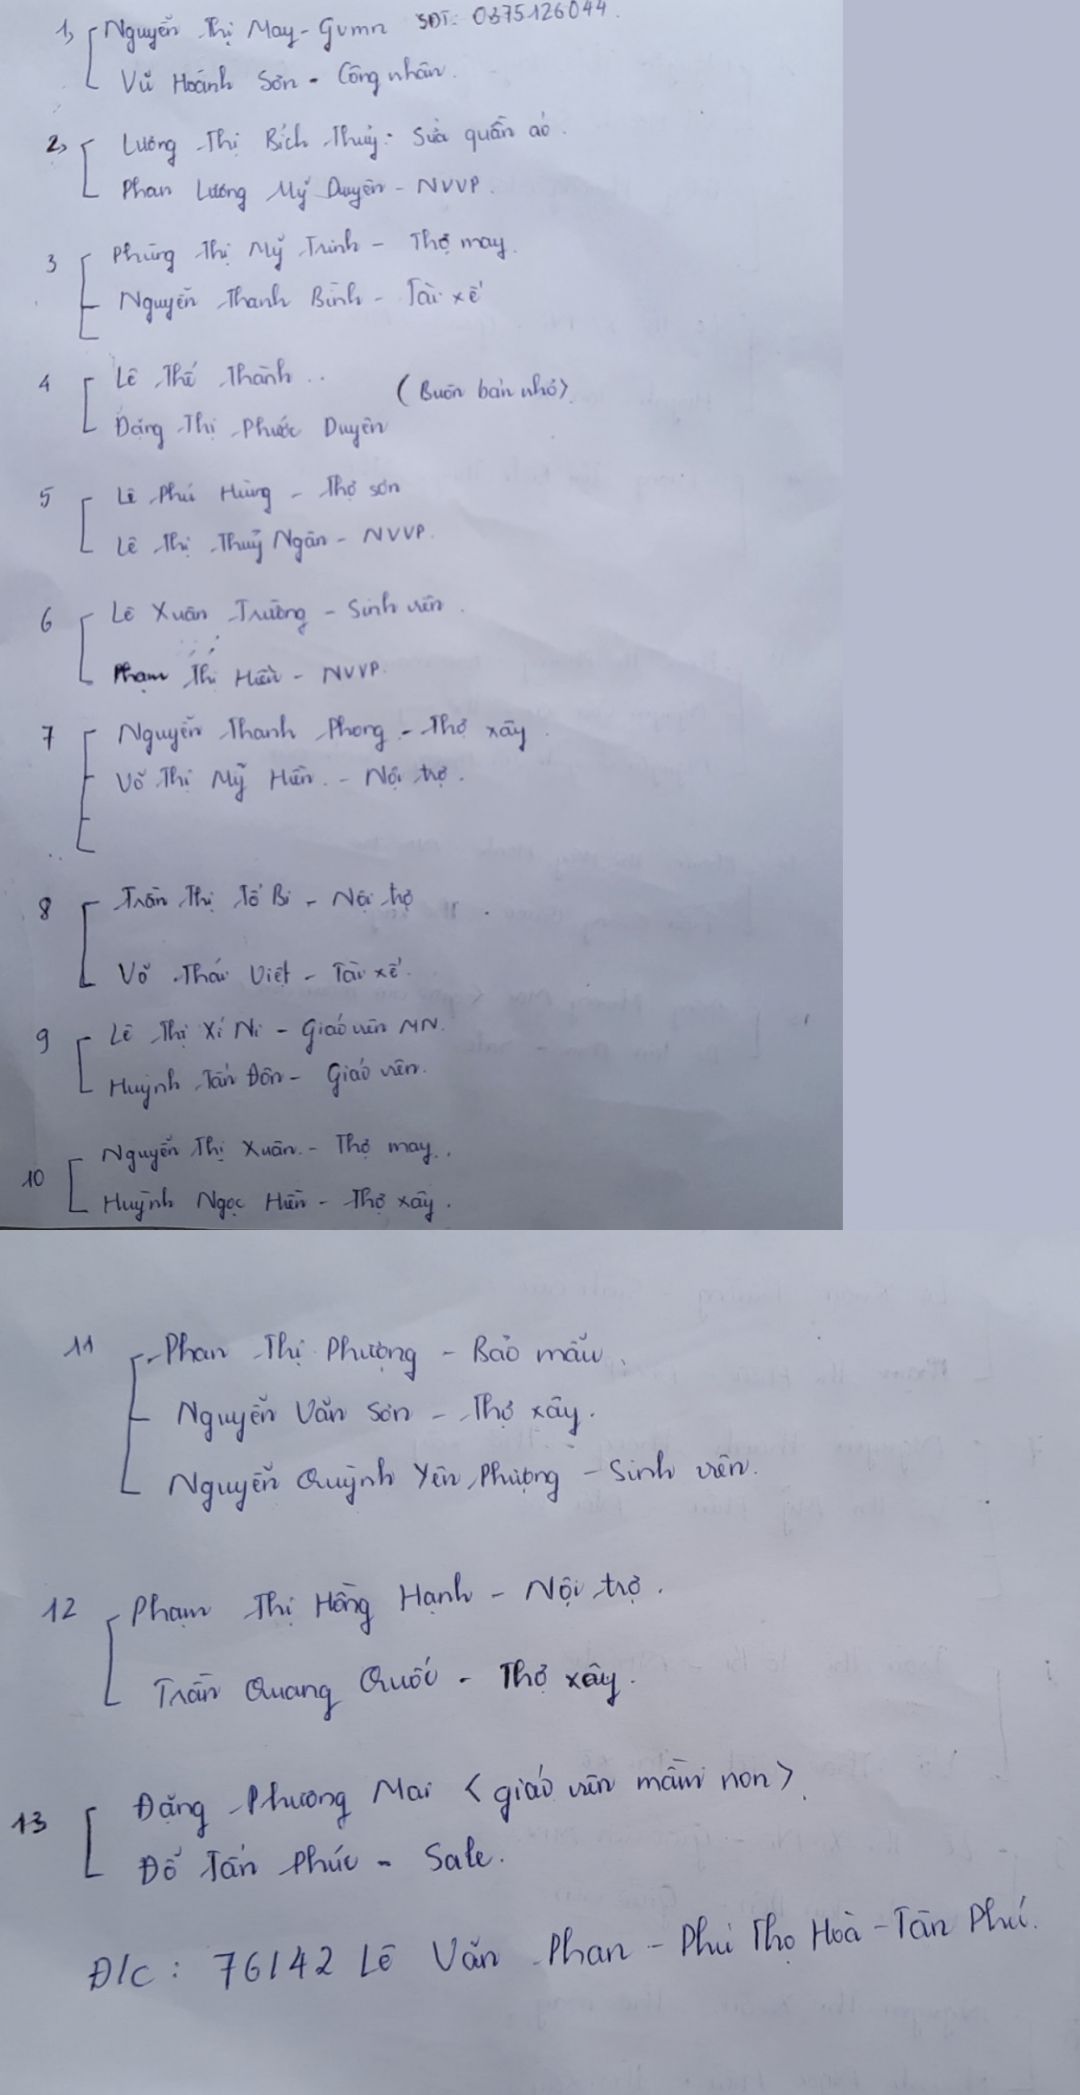 1, Nguyễn Thị May - Gvmn SĐT: 0375126044.
Vũ Hoánh Sơn - Công nhân.
2, Lương Thị Bích Thuỷ: Sửa quần áo.
Phan Lương Mỹ Duyên - NVVP.
3 Phùng Thị Mỹ Trinh - Thợ may.
Nguyễn Thanh Bình - Tài xế
4 Lê Thế Thành..
(Buôn bán nhỏ)
Đặng Thị Phước Duyên
5 Lê Phú Hùng - Thợ sơn
Lê Thị Thuỷ Ngân - NVVP.
6 Lê Xuân Trường - Sinh viên.
Phạm Thị Hiền - NVVP.
7 Nguyễn Thanh Phong - Thợ xây.
Võ Thị Mỹ Hiền. - Nội trợ.
8 Trần Thị Tố Bi - Nội trợ
Võ Thái Việt - Tài xế.
9 Lê Thị Xí Ni - Giáo viên MN.
Huỳnh Tấn Đôn - Giáo viên.
10 Nguyễn Thị Xuân. - Thợ may..
Huỳnh Ngọc Hiền - Thợ xây.
11 Phan Thị Phượng - Bảo mẫu.
Nguyễn Văn Sơn - Thợ xây.
Nguyễn Quỳnh Yên Phượng - Sinh viên.
12 Phạm Thị Hồng Hạnh - Nội trợ.
Trần Quang Quốc - Thợ xây.
13 Đặng Phương Mai <giáo viên mầm non>.
Đỗ Tấn Phúc - Sale.
Đ/c: 76/42 Lê Văn Phan - Phú Thọ Hoà - Tân Phú.